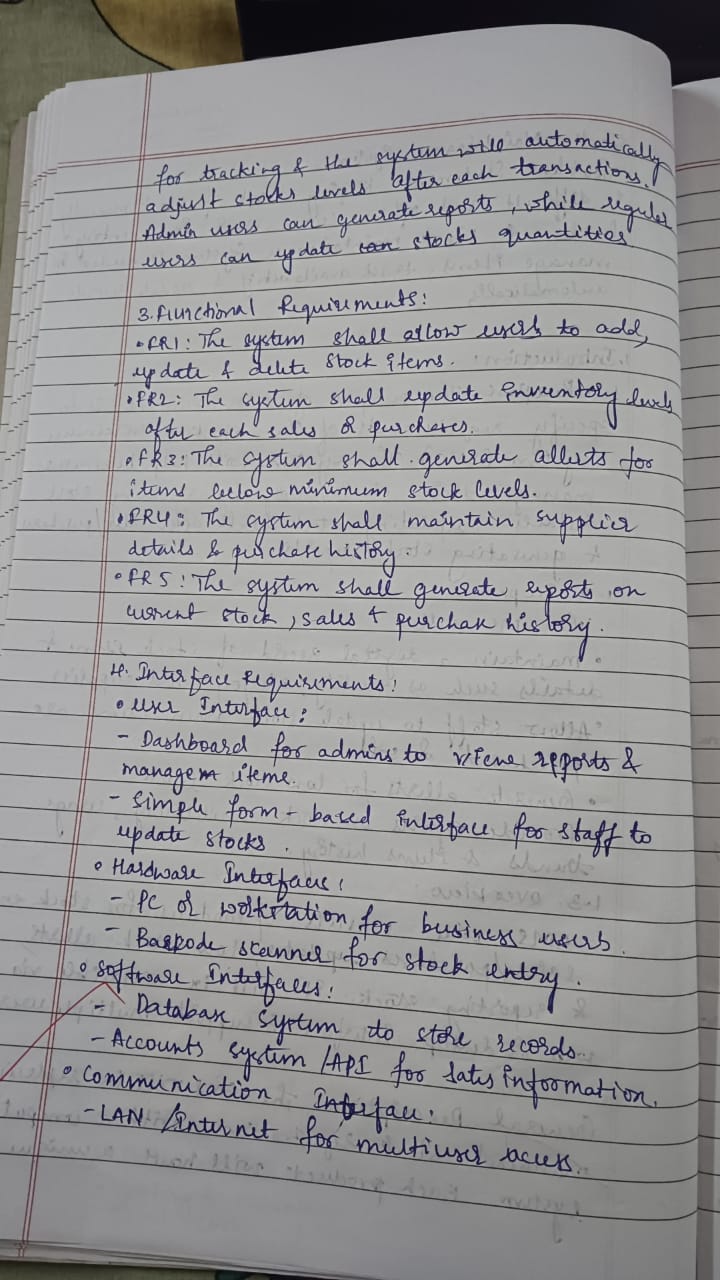 for tracking & the system will automatically
adjust stocks levels after each transactions.
Admin users can generate reports, while regular
users can update stocks quantities
3. Functional Requirements:
• FR1: The system shall allow users to add,
update & delete stock items.
• FR2: The system shall update inventory levels
after each sales & purchases.
• FR3: The system shall generate allerts for
items below minimum stock levels.
• FR4: The system shall maintain supplier
details & purchase history.
• FR5: The system shall generate reports on
current stock, sales & purchase history.
4. Interface Requirements:
• User Interface:
- Dashboard for admins to view reports &
manage items.
- Simple form-based interface for staff to
update stocks.
• Hardware Interfaces:
- PC or workstation for business users.
- Barkode scanner for stock entry.
• Software Interfaces:
- Database system to store records.
- Accounts system /API for information.
• Communication Interface:
- LAN /Internet for multiuser access.